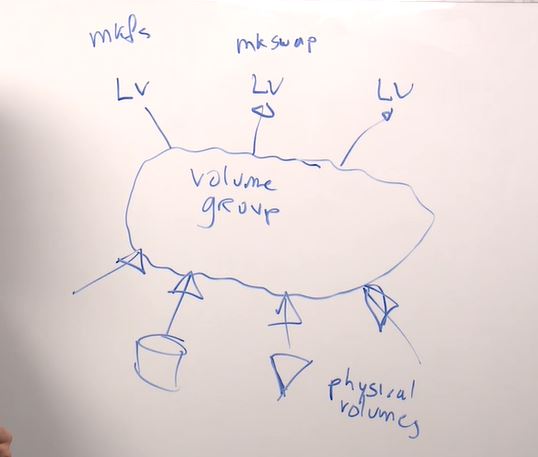 mkfs
mkswap
LV
LV
LV
volume
group
physical
volumes